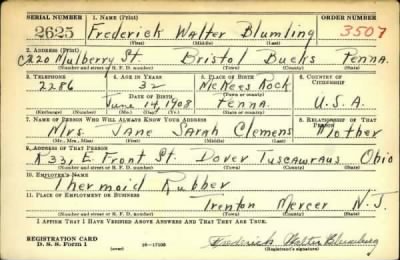 SERIAL NUMBER 1. NAME (Print) ORDER NUMBER
2625 Frederick Walter Blumling 3507
(First) (Middle) (Last)
2. ADDRESS (Print)
220 Mulberry St. Bristol Bucks Penna.
(Number and street or R. F. D. number) (Town) (County) (State)
3. TELEPHONE 4. AGE IN YEARS 5. PLACE OF BIRTH 6. COUNTRY OF CITIZENSHIP
2286 32 McKees Rock
DATE OF BIRTH (Town or county)
June 14, 1908 Penna. U.S.A.
(Exchange) (Number) (Mo.) (Day) (Yr.) (State or country)
7. NAME OF PERSON WHO WILL ALWAYS KNOW YOUR ADDRESS 8. RELATIONSHIP OF THAT PERSON
Mrs. Jane Sarah Clemens Mother
(Mr., Mrs., Miss) (First) (Middle) (Last)
9. ADDRESS OF THAT PERSON
331 E Front St. Dover Tuscawraus Ohio
(Number and street or R. F. D. number) (Town) (County) (State)
10. EMPLOYER'S NAME
Thermoid Rubber
11. PLACE OF EMPLOYMENT OR BUSINESS
Trenton Mercer N.J.
(Number and street or R. F. D. number) (Town) (County) (State)
I AFFIRM THAT I HAVE VERIFIED ABOVE ANSWERS AND THAT THEY ARE TRUE.
REGISTRATION CARD
D. S. S. Form 1 (over) 16-17105 Frederick Walter Blumling
(Registrant's signature)